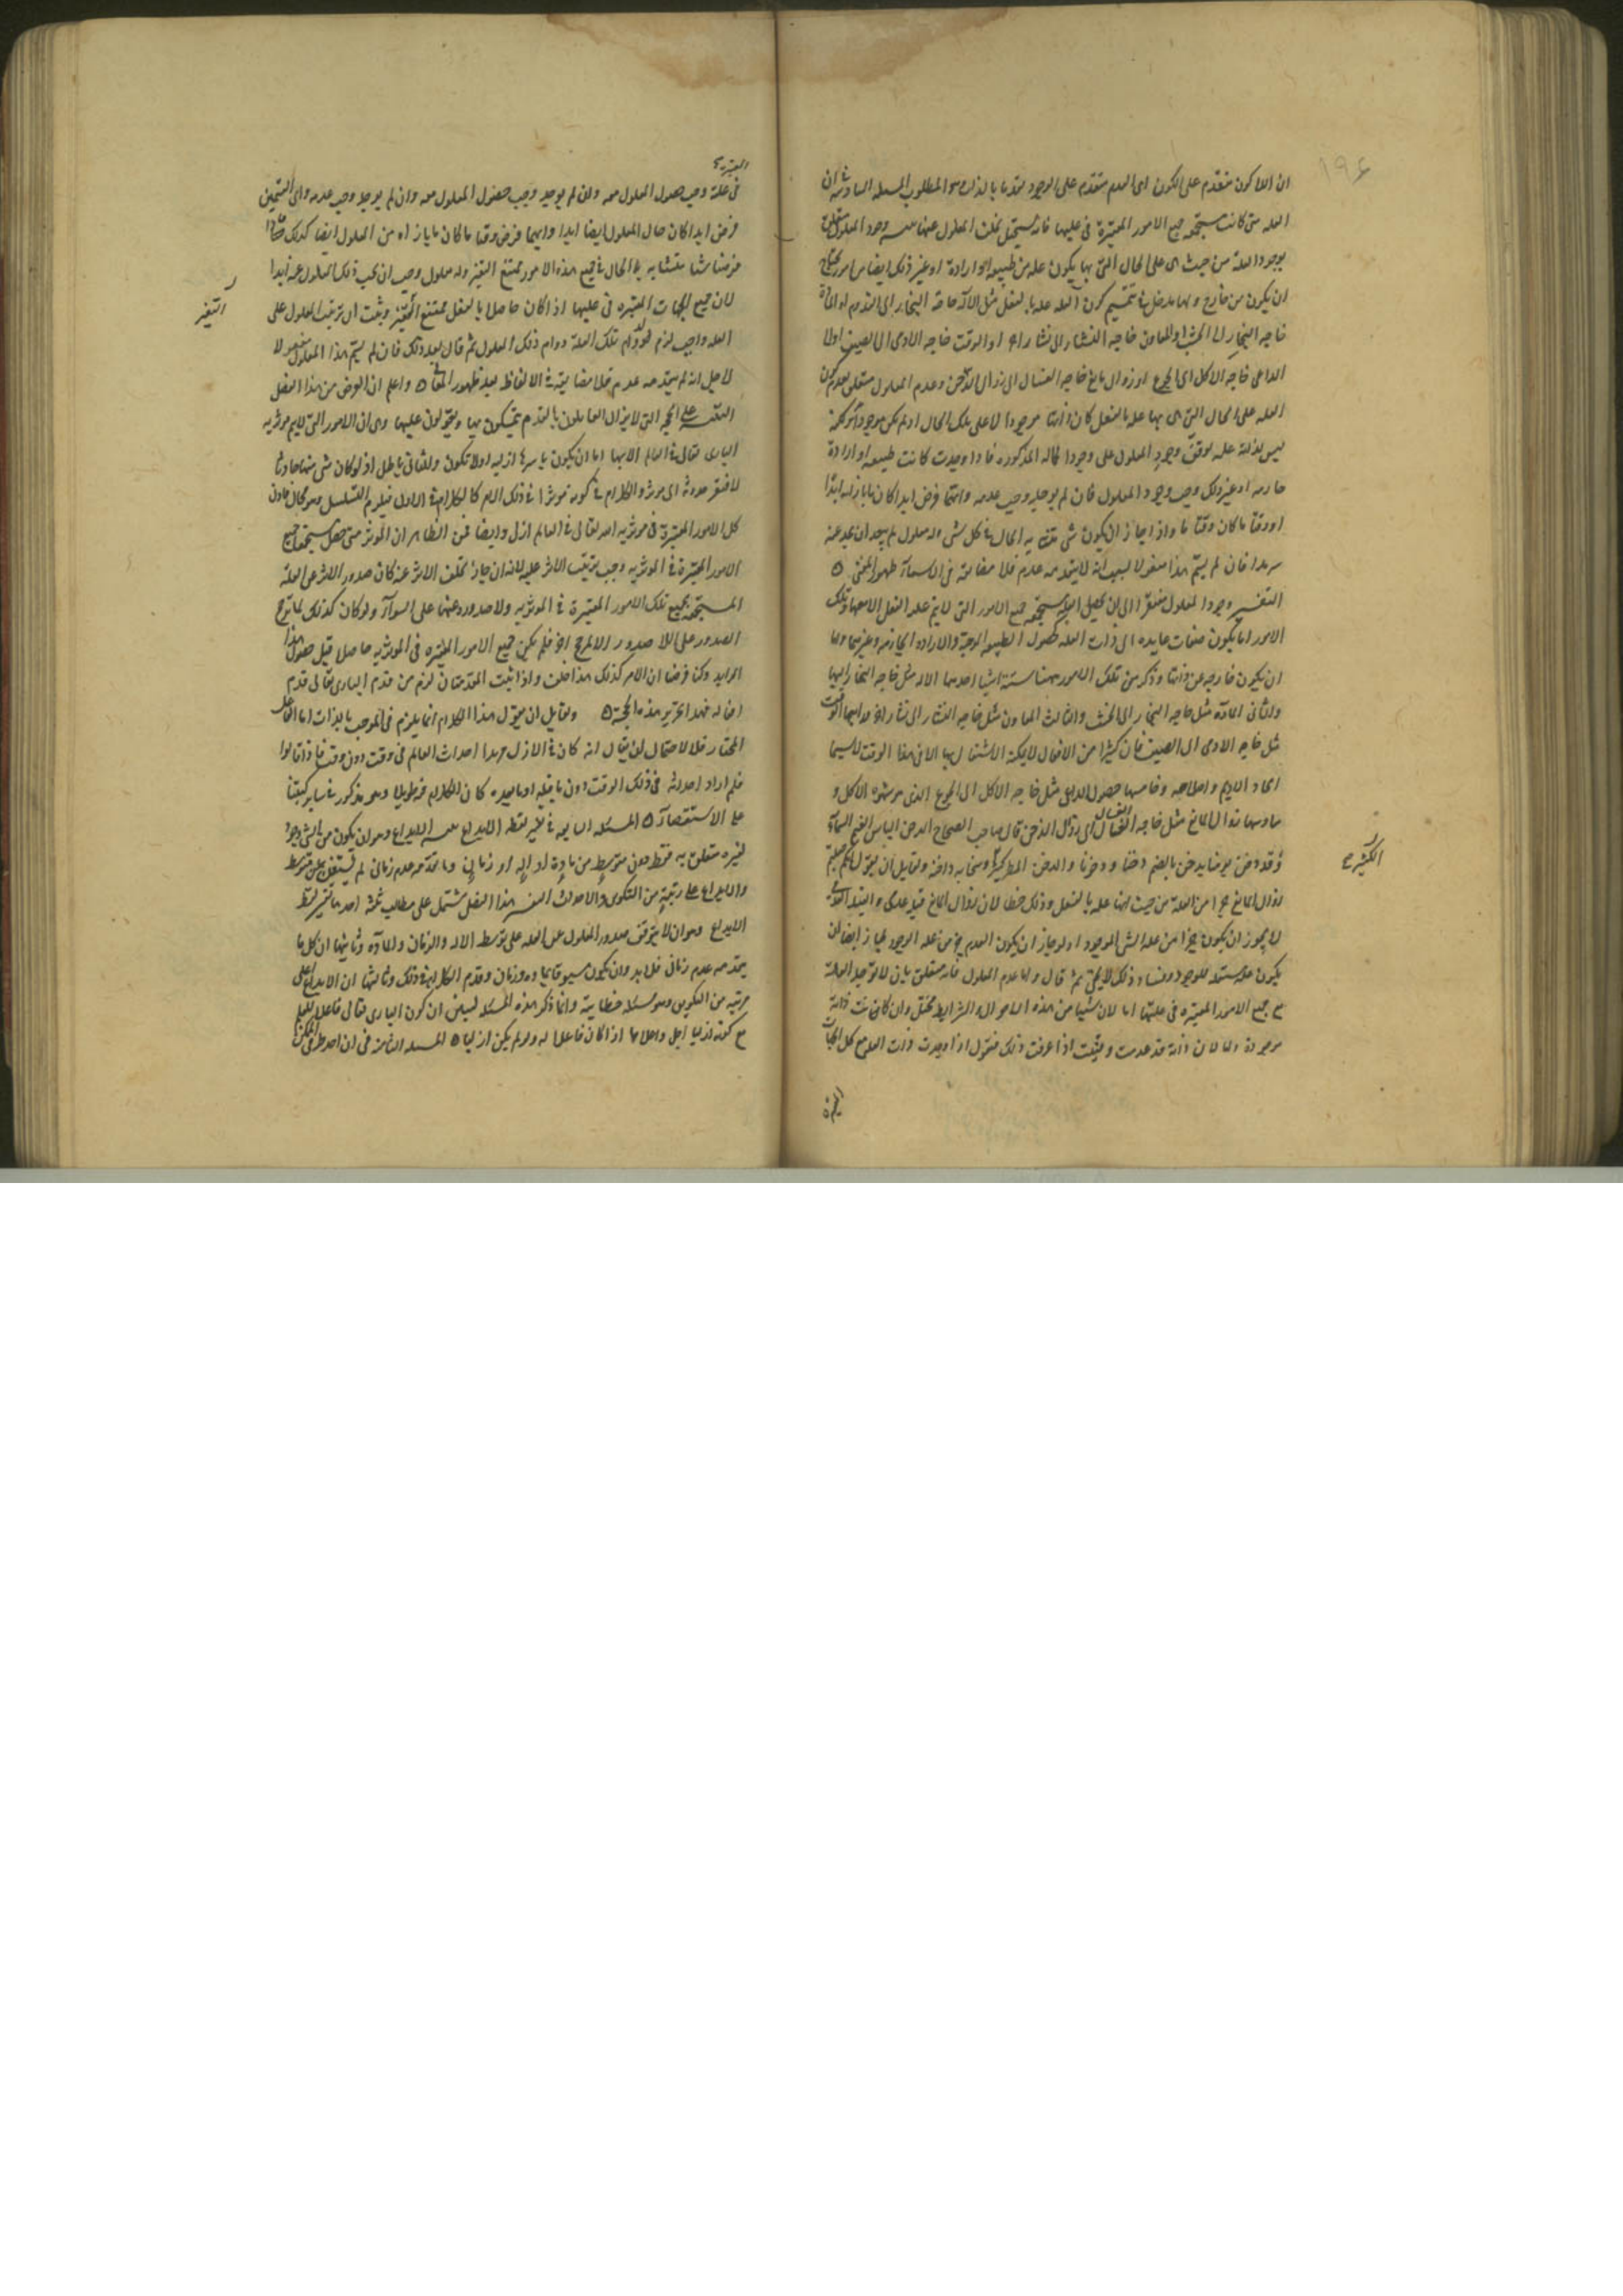 ١٩۶
ان اللا كون متقدم على الكون اى العدم متقدم على الوجود تقدما بالذات وهو المطلوب المسئلة السادسة فى ان
العلة متى كانت مستجمعة جميع الامور المعتبرة فى عليتها فانه يستحيل تخلف المعلول عنها وجود المعلول متعلق
بوجود العلة من حيث هى على الحال التى بها يكون علة من طبيعة او ارادة او غير ذلك ايضا من امور يحتاج
ان يكون من خارج ولها مدخل فى تتميم كون العلة علة بالفعل مثل الآلة حاجة النجار الى القدوم او المادة
حاجة النجار الى الخشب او المعاون حاجة النشار الى نشار اخر او الوقت حاجة الادمى الى الصيف او
الداعى حاجة الاكل الى الجوع او زوال مانع حاجة الغسال الى زوال الدجن وعدم المعلول متعلق بعدم كون
العلة على الحال التى هى بها علة بالفعل كان ذاتها موجودا لا على تلك الحال او لم يكن موجودا
ليس بذاته علة توقف وجود المعلول على وجود الحالة المذكورة فاذا وجدت كانت طبيعة او ارادة
جازمة او غير ذلك وجب وجود المعلول فان لم يوجد وجب عدمه وايهما فرض ابدا كان ما بازائه ابدا
او وقتا ما كان وقتا ما واذا جاز ان يكون شى متشابه الحال فى كل شى وله معلول لم يبعد ان يجب عنه
سرمدا فان لم يسم هذا مفعولا لسبب انه لا يتقدمه عدم فلا مضايقة فى الاسماء بعد ظهور المعنى ه
التفسير وجود المعلول الى ان يحصل جميع الامور التى لا يتم علة الفعل الا معها وتلك
الامور اما يكون صفات عايدة الى ذات العلة كحصول الطبيعة الموجبة والارادة الجازمة وغيرهما واما
ان يكون خارجة عن ذاتها وذكر من تلك الامور ههنا ستة اشيا احدها الالة مثل حاجة النجار اليها
والثانى المادة مثل حاجة النجار الى الخشب والثالث المعاون مثل حاجة النشار الى نشار اخر ورابعها الوقت
مثل حاجة الادمى الى الصيف فان كثيرا من الافعال لا يمكنه الاشتغال بها الا فى هذا الوقت لا سيما
اتخاد الاديم واصلاحه وخامسها حصول الداعى مثل حاجة الاكل الى الجوع الذى هو شهوة الاكل و
سادسها زوال المانع مثل حاجة الغسال الى زوال الدجن قال صاحب الصحاح الدجن الباس الغيم السماء
وقد دجن يومنا يدجن بالضم دجنا ودجونا والدجن المطر الكثير وسحابة داجنة ولقايل ان يقول
زوال المانع جزا من العلة من حيث انها علة بالفعل وذلك خطا لان زوال المانع قيد عدمى والقيد العدمى
لا يجوز ان يكون جزا من علة الشى الموجود اذ لو جاز ان يكون العدم جزء من علة الوجود لجاز ايضا ان
يكون علة مستقلة للوجود وفساد ذلك لا يخفى ثم قال واما عدم المعلول فانه متعلق بان لا توجد العلة
مع جميع الامور المعتبرة فى عليتها اما لان شيئا من هذه الاحوال والشرايط مختل وان كانت ذاته
موجودة واما لان ذاته قد عدمت اذا عرفت ذلك فنقول اذا وجدت ذات العلة مع كل الجهات
الكثير صح
المعتبرة
فى علة وجب حصول المعلول معه وان لم يوجد وجب عدمه واى القسمين
فرض ابدا كان حال المعلول ايضا ابدا وايهما فرض وقتا ما كان ما بازاه من المعلول ايضا كذلك فاذا
فرضنا شيا متشابه الحال فى جميع هذه الامور ممتنع التغير وله معلول وجب ان يجب ذلك المعلول عنه ابدا
لان جميع الجهات المعتبرة فى عليتها اذا كان حاصلا بالفعل ممتنع التغير وثبت ان ترتيب المعلول على
العلة واجب لزم لدوام تلك العلة دوام ذلك المعلول ثم قال بعد ذلك فان لم يسم هذا المعلول مفعولا
لاجل انه لم يتقدمه عدم فلا مضايقة فى الالفاظ بعد ظهور المعانى ه واعلم ان الغرض من هذا الفصل
التنبيه على الحجة التى لا يزال القايلون بالقدم يتمسكون بها ويقولون عليها وهى ان الامور التى لا يتم موثرية
البارى تعالى فى العالم الا بها اما ان يكون باسرها ازلية اولا تكون والثانى باطل اذ لو كان شى منها حادثا
لافتقر حدوثه الى موثر والكلام فى كونه موثرا فى ذلك الامر كالكلام فى الاول فيلزم التسلسل وهو محال فاذن
كل الامور المعتبرة فى موثرية الله تعالى فى العالم ازلى وايضا فمن الظاهر ان الموثر متى حصل مستجمعا جميع
الامور المعتبرة فى الموثرية وجب ترتيب الاثر عليه لانه ان جاز تخلف الاثر عنه كان صدور الاثر عن العلة
المستجمعة لجميع تلك الامور المعتبرة فى الموثرية ولا صدوره عنها على السواء ولو كان كذلك لما ترجح
الصدور على اللا صدور الا لمرجح اخر فلم يكن جميع الامور المعتبرة فى الموثرية حاصلا قبل حصول هذا
الزايد وكنا فرضنا ان الامر كذلك هذا خلف واذا ثبت المقدمتان لزم من قدم البارى تعالى قدم
افعاله فهذا تحرير هذه الحجة ه ولقايل ان يقول هذا الكلام انما يلزم فى الموجب بالذات اما الفاعل
المختار فلا لاحتمال ان يقال انه كان فى الازل مريدا احداث العالم فى وقت دون وقت فاذا قالوا
فلم اراد احداثه فى ذلك الوقت دون ما قبله او ما بعده كان الكلام فيه طويلا وهو مذكور فى ساير كتبنا
على الاستقصاء ه المسئلة السابعة فى تفسير لفظة الابداع الابداع وهو ان يكون من الشى وجود
لغيره متعلق به فقط دون متوسط من مادة او الة او زمان وما تقدمه عدم زمانى لم يستغن عن متوسط
والابداع على رتبة من التكوين والاحداث التفسير هذا الفصل مشتمل على مطالب ثلثة احدها تفسير لفظ
الابداع وهو ان لا يتوقف صدور المعلول عن العلة على توسط الالة والزمان والمادة وثانيها ان كل ما
يتقدمه عدم زمانى فلا بد وان يكون مسبوقا بمادة وزمان وتقدم الكلام فى ذلك وثالثها ان الابداع اعلى
مرتبة من التكوين وهو مسئلة خطابية وانما ذكر هذه المسئلة ليبين ان كون البارى تعالى فاعلا للعالم
مع كونه ازليا اجل واعلى مما اذا كان فاعلا له ولو لم يكن ازليا ه المسئلة الثامنة فى ان احد طرفى الممكن
التغير
الجهات